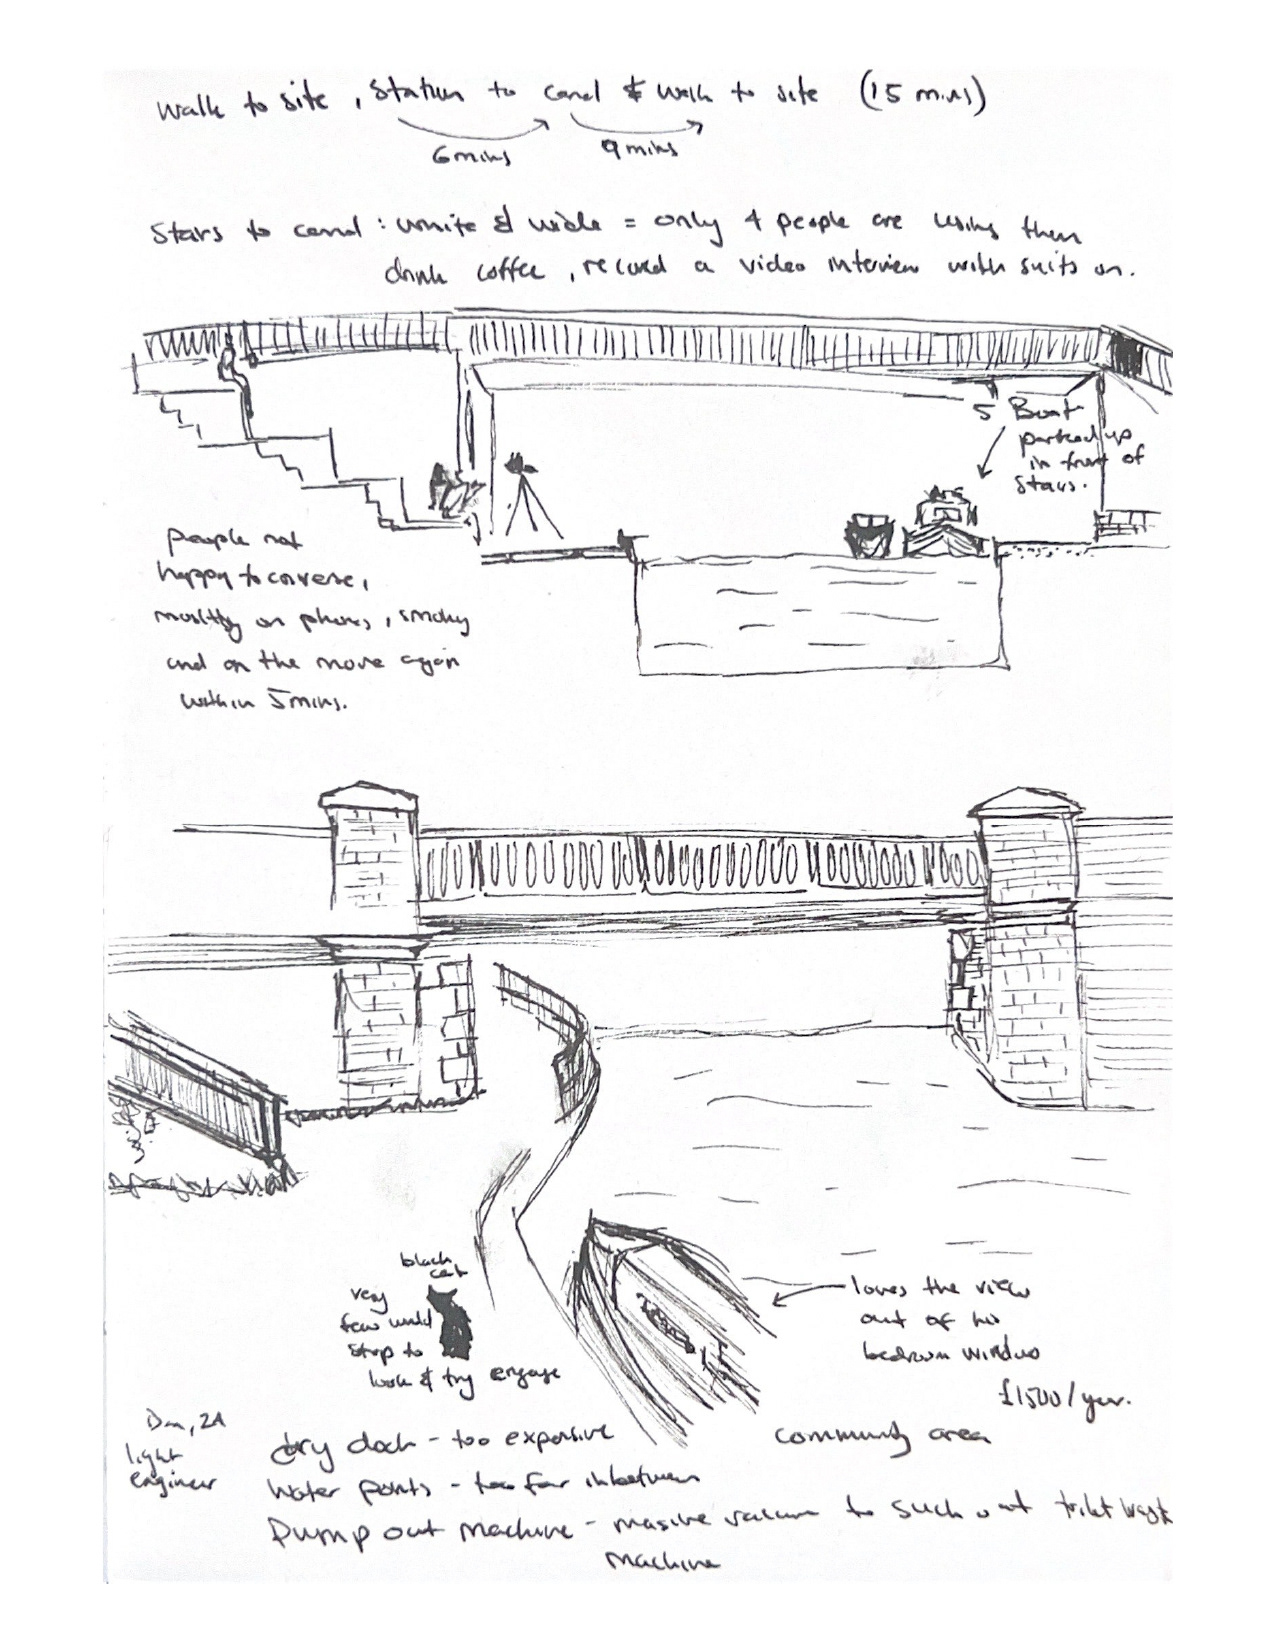 walk to site, station to canal & walk to site (15 mins)
6mins 9mins
Stairs to canal: white & wide = only 4 people are using them
drink coffee, record a video interview with suits on.
5 Boat
parked up
in front of
Stairs.
people not
happy to converse,
mostly on phones, smoky
and on the move again
within 5mins.
black
cat
very
few would
stop to
look & try engage
loves the view
out of his
bedroom window
£1500/year.
community area
Dan, 24
light
engineer
dry dock - too expensive
Water points - too far inbetween
Pump out machine - massive vacuum to suck out toilet waste
machine